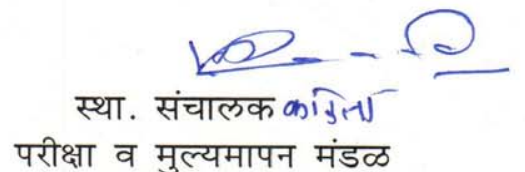 स्था. संचालक करिता
परीक्षा व मुल्यमापन मंडळ